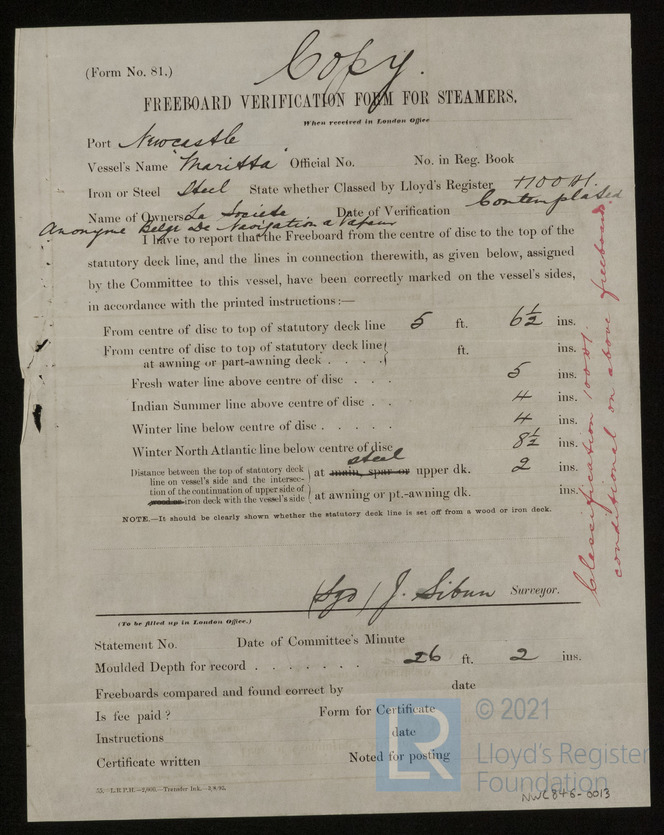 Copy.
(Form No. 81.)
FREEBOARD VERIFICATION FORM FOR STEAMERS.
When received in London Office
Port Newcastle
Vessel's Name "Maritta" Official No. No. in Reg. Book
Iron or Steel Steel State whether Classed by Lloyd's Register +100A1. Contemplated
Name of Owners La Societe Anonyme Belge de Navigation a Vapeur Date of Verification
I have to report that the Freeboard from the centre of disc to the top of the
statutory deck line, and the lines in connection therewith, as given below, assigned
by the Committee to this vessel, have been correctly marked on the vessel's sides,
in accordance with the printed instructions:—
From centre of disc to top of statutory deck line 5 ft. 6½ ins.
From centre of disc to top of statutory deck line
at awning or part-awning deck . . . . ft. ins.
Fresh water line above centre of disc . . . 5 ins.
Indian Summer line above centre of disc . . 4 ins.
Winter line below centre of disc . . . . . 4 ins.
Winter North Atlantic line below centre of disc 8½ ins.
Distance between the top of statutory deck
line on vessel's side and the intersec-
tion of the continuation of upper side of
wood or iron deck with the vessel's side
at main, spar or steel upper dk. 2 ins.
at awning or pt.-awning dk. ins.
NOTE.—It should be clearly shown whether the statutory deck line is set off from a wood or iron deck.
Classification 100A1.
conditional on above freeboard.
(Sgd) J. Sibun Surveyor.
(To be filled up in London Office.)
Statement No. Date of Committee's Minute
Moulded Depth for record . . . . . . . 26 ft. 2 ins.
Freeboards compared and found correct by date
Is fee paid? Form for Certificate
Instructions date
Certificate written Noted for posting
L.R.P.H.—2,000.—Transfer Ink.
© 2021
Lloyd's Register
Foundation
LR
NWC846-0013